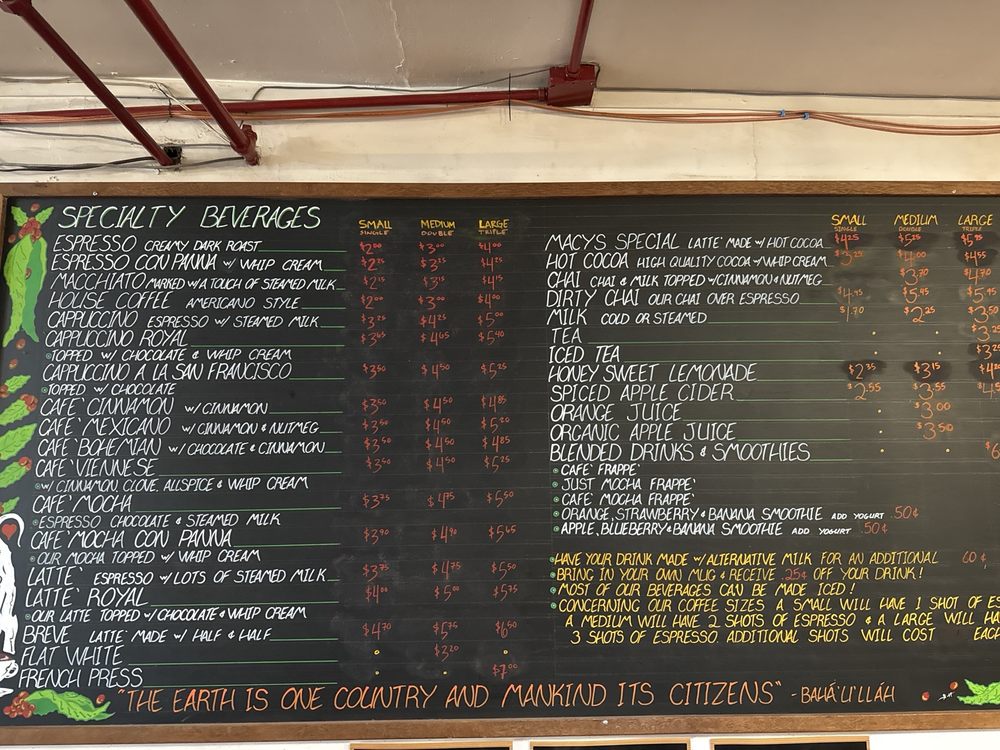 SPECIALTY BEVERAGES SMALL MEDIUM LARGE
SINGLE DOUBLE TRIPLE
ESPRESSO CREAMY DARK ROAST $2.00 $3.00 $4.00
ESPRESSO CON PANNA W/ WHIP CREAM $2.25 $3.25 $4.25
MACCHIATO MARKED W/A TOUCH OF STEAMED MILK $2.15 $3.15 $4.15
HOUSE COFFEE AMERICANO STYLE $2.00 $3.00 $4.00
CAPPUCCINO ESPRESSO W/ STEAMED MILK $3.25 $4.25 $5.00
CAPPUCCINO ROYAL $3.65 $4.65 $5.40
TOPPED W/ CHOCOLATE & WHIP CREAM
CAPPUCCINO A LA SAN FRANCISCO $3.50 $4.50 $5.25
TOPPED W/ CHOCOLATE
CAFE` CINNAMON W/ CINNAMON $3.50 $4.50 $4.85
CAFE` MEXICANO W/ CINNAMON & NUTMEG $3.50 $4.50 $5.20
CAFE` BOHEMIAN W/ CHOCOLATE & CINNAMON $3.50 $4.50 $4.85
CAFE` VIENNESE $3.50 $4.50 $5.25
W/ CINNAMON, CLOVE, ALLSPICE & WHIP CREAM
CAFE` MOCHA $3.75 $4.75 $5.50
ESPRESSO CHOCOLATE & STEAMED MILK
CAFE` MOCHA CON PANNA $3.90 $4.90 $5.65
OUR MOCHA TOPPED W/ WHIP CREAM
LATTE` ESPRESSO W/ LOTS OF STEAMED MILK $3.75 $4.75 $5.50
LATTE` ROYAL $4.00 $5.00 $5.75
OUR LATTE TOPPED W/ CHOCOLATE & WHIP CREAM
BREVE LATTE` MADE W/ HALF & HALF $4.70 $5.75 $6.50
FLAT WHITE $3.20
FRENCH PRESS $7.00
SMALL MEDIUM LARGE
SINGLE DOUBLE TRIPLE
MACYS SPECIAL LATTE` MADE W/ HOT COCOA $4.25 $5.25
HOT COCOA HIGH QUALITY COCOA W/WHIP CREAM $4.00 $4.55
CHAI CHAI & MILK TOPPED W/CINNAMON & NUTMEG $3.70 $4.70
DIRTY CHAI OUR CHAI OVER ESPRESSO $4.95 $5.95
MILK COLD OR STEAMED $1.70 $2.25 $3.50
TEA
ICED TEA
HONEY SWEET LEMONADE $2.35 $3.15
SPICED APPLE CIDER $2.55 $3.55
ORANGE JUICE $3.00
ORGANIC APPLE JUICE $3.50
BLENDED DRINKS & SMOOTHIES
CAFE` FRAPPE`
JUST MOCHA FRAPPE`
CAFE` MOCHA FRAPPE`
ORANGE, STRAWBERRY & BANANA SMOOTHIE ADD YOGURT .50¢
APPLE, BLUEBERRY & BANANA SMOOTHIE ADD YOGURT .50¢
HAVE YOUR DRINK MADE W/ALTERNATIVE MILK FOR AN ADDITIONAL 60¢
BRING IN YOUR OWN MUG & RECEIVE .25¢ OFF YOUR DRINK!
MOST OF OUR BEVERAGES CAN BE MADE ICED!
CONCERNING OUR COFFEE SIZES A SMALL WILL HAVE 1 SHOT OF ES
A MEDIUM WILL HAVE 2 SHOTS OF ESPRESSO & A LARGE WILL HA
3 SHOTS OF ESPRESSO ADDITIONAL SHOTS WILL COST EACH
"THE EARTH IS ONE COUNTRY AND MANKIND ITS CITIZENS" - BAHÁ'U'LLÁH